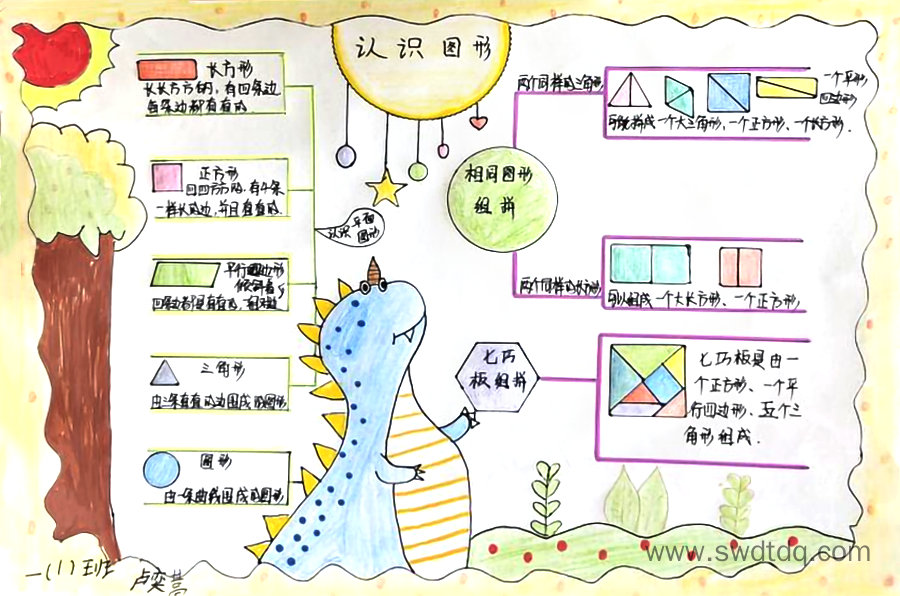 认识图形
长方形
长长方方的，有四条边
每条边都有直的.
正方形
四四方方的，有4条
一样长的边，并且直直的.
平行四边形
倾斜着
四条边都是直直的，
三角形
由三条直直的边围成的图形
圆形
由一条曲线围成的图形
认识平面
图形
相同图形
组拼
两个同样的三角形
一个平形
四边形
可能拼成一个大三角形，一个正方形、一个长方形.
两个同样的长方形
可以组成一个大长方形、一个正方形
七巧
板组拼
七巧板是由一
个正方形、一个平
行四边形、五个三
角形组成.
一(1)班
卢奕
www.swdtdq.com